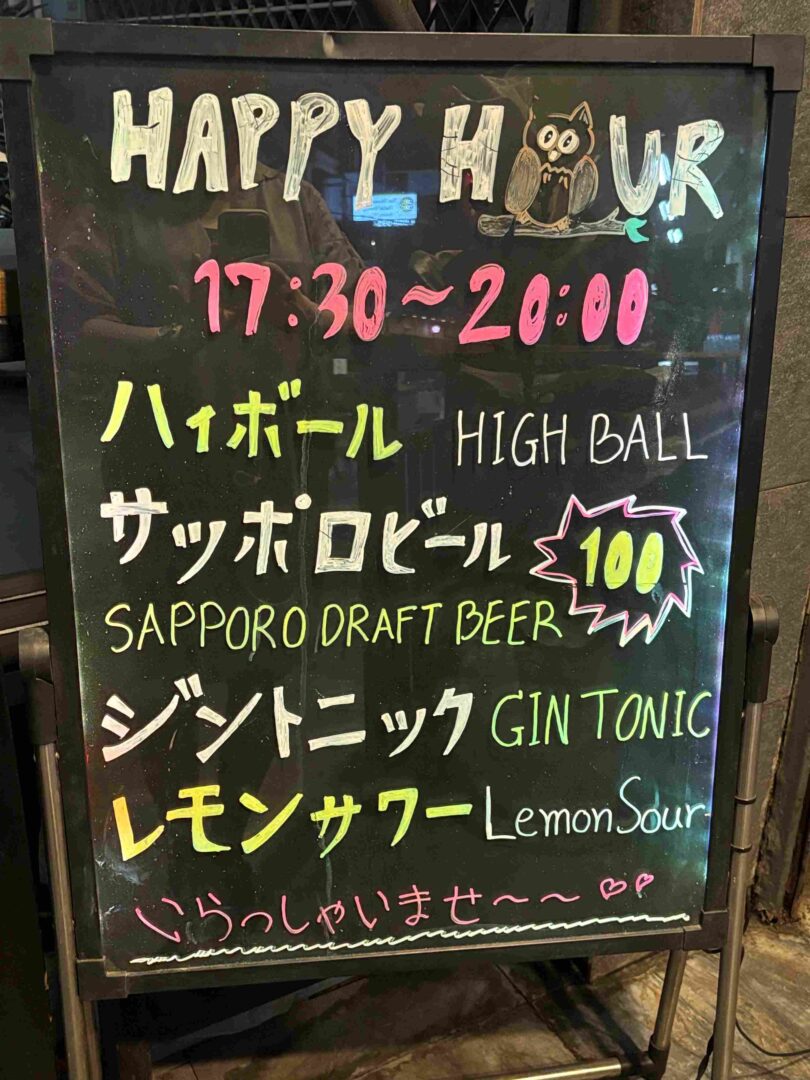 HAPPY HOUR
17:30～20:00
ハイボール HIGH BALL
サッポロビール 100
SAPPORO DRAFT BEER
ジントニック GIN TONIC
レモンサワー Lemon Sour
いらっしゃいませ～～